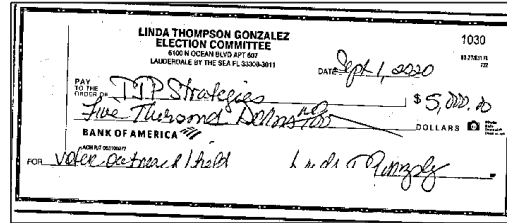 LINDA THOMPSON GONZALEZ
ELECTION COMMITTEE
5100 N OCEAN BLVD APT 607
LAUDERDALE BY THE SEA FL 33308-3011
1030
DATE Sept 1, 2020
PAY TO THE ORDER OF TJP Strategies $ 5,000.00
Five Thousand Dollars no/100 DOLLARS
BANK OF AMERICA
FOR voter outreach/field